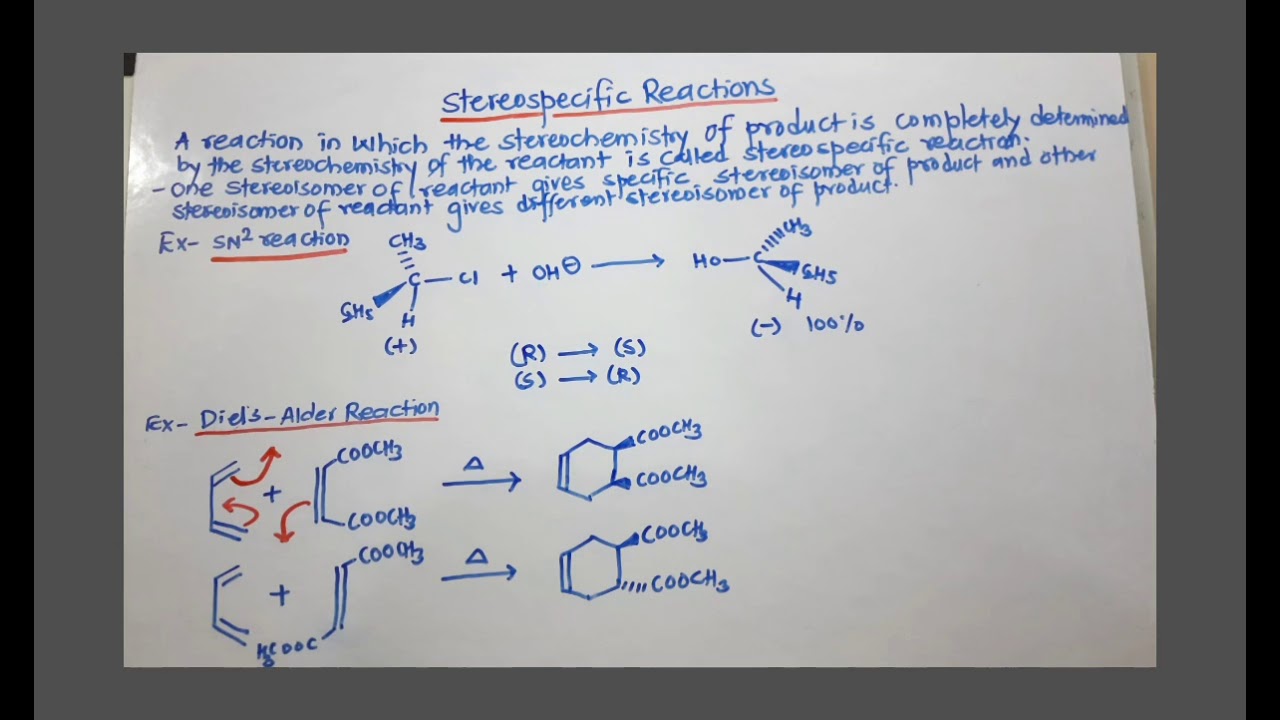 Stereospecific Reactions
A reaction in which the stereochemistry of product is completely determined
by the stereochemistry of the reactant is called stereospecific reaction.
- One stereoisomer of reactant gives specific stereoisomer of product and other
stereoisomer of reactant gives different stereoisomer of product.
Ex- SN2 reaction
CH3 CH3
C - Cl + OH⊖ → HO - C
C2H5 C2H5
H H
(+) (-) 100%
(R) → (S)
(S) → (R)
Ex- Diel's-Alder Reaction
COOCH3 COOCH3
+ Δ →
COOCH3 COOCH3
COOCH3 COOCH3
+ Δ →
COOCH3
H3COOC